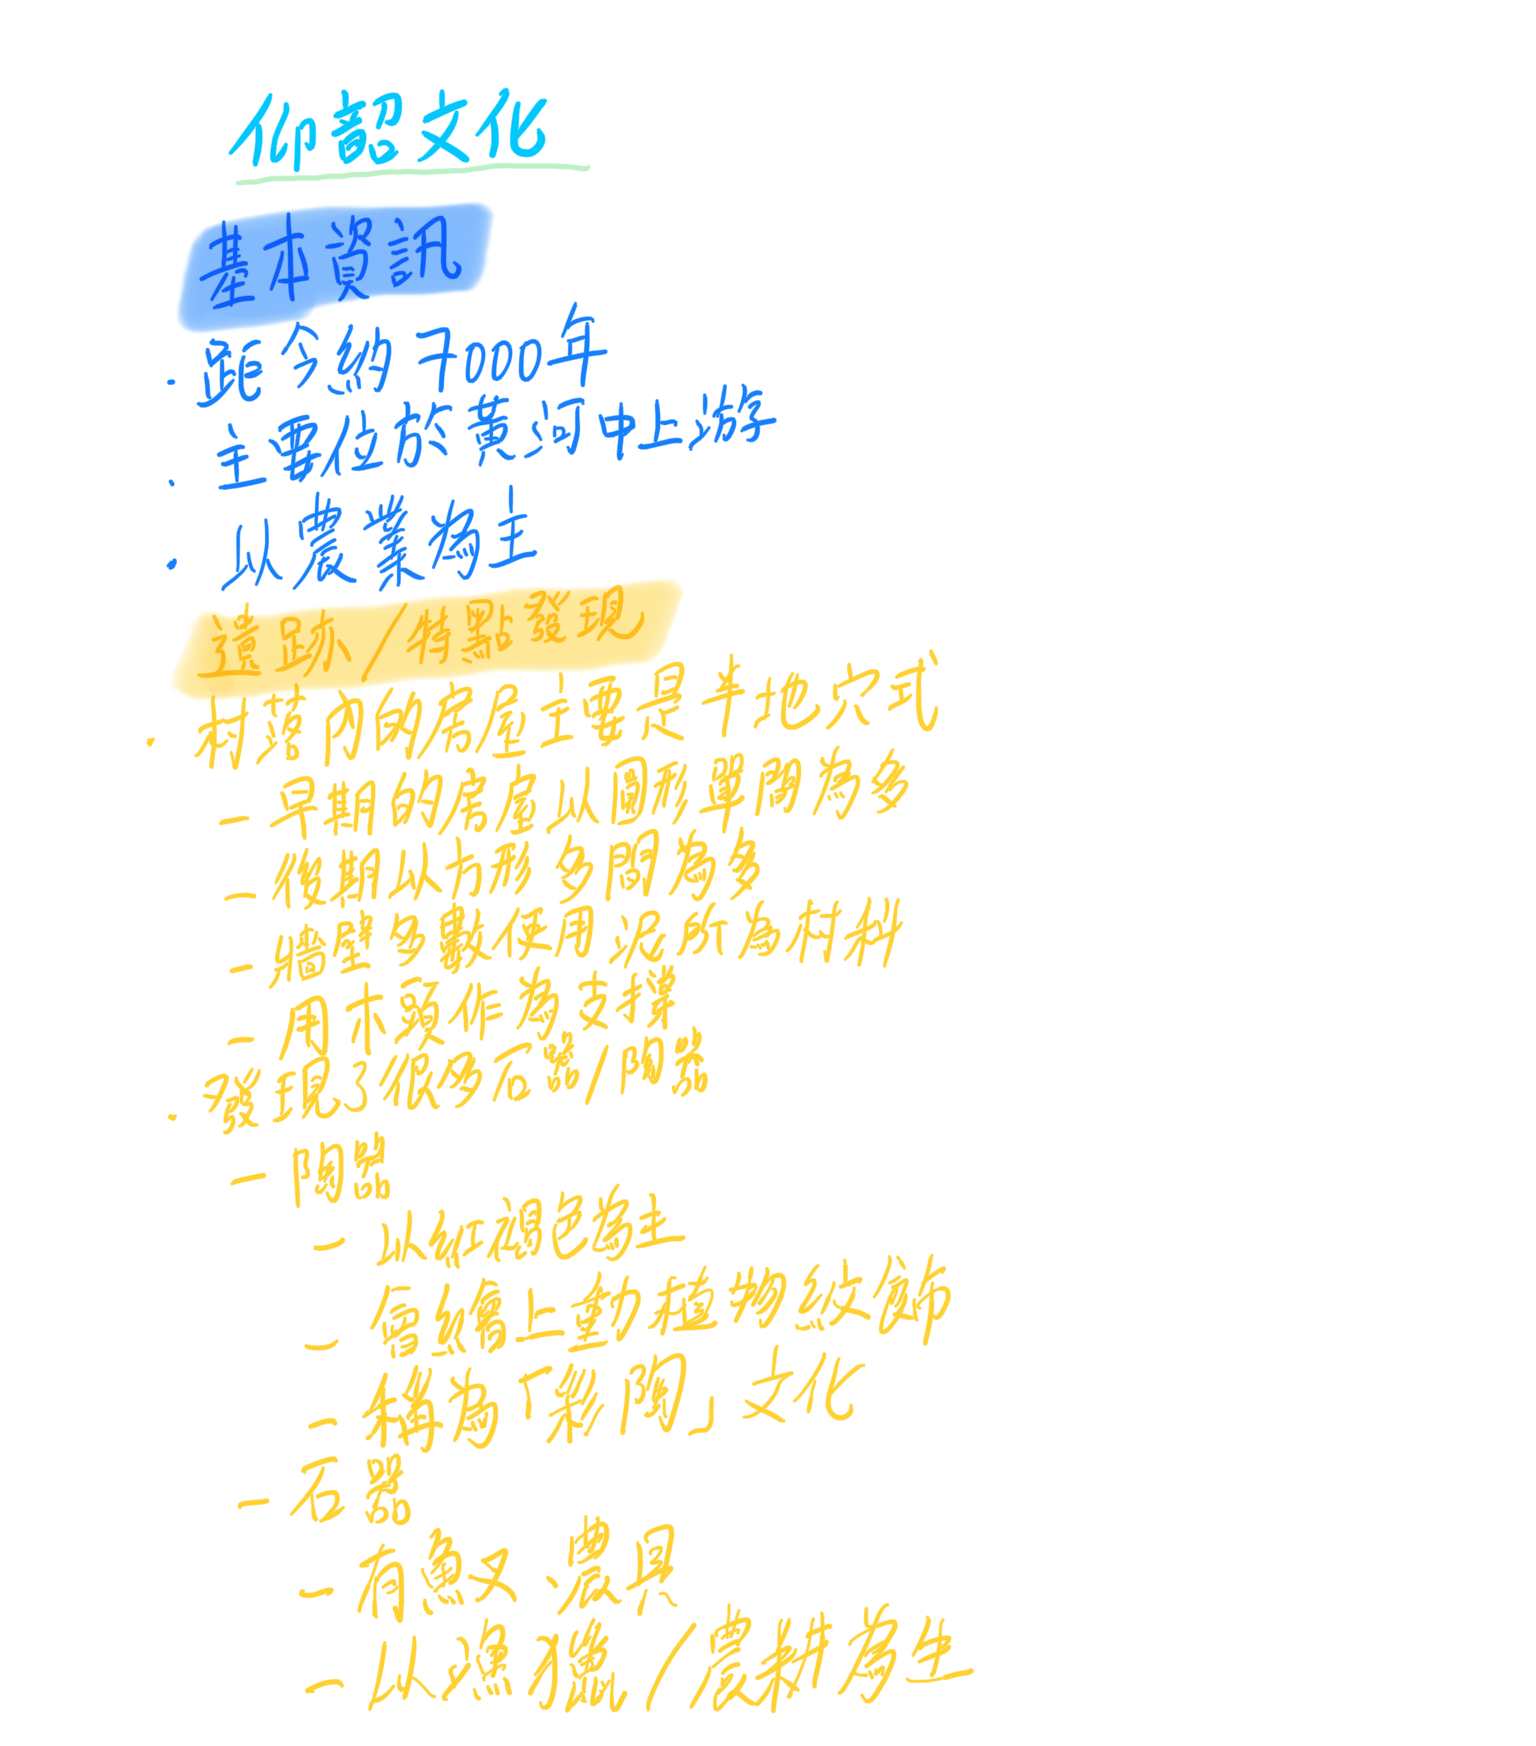 仰韶文化
基本資訊
· 距今約7000年
· 主要位於黃河中上游
· 以農業為主
遺跡/特點發現
· 村落內的房屋主要是半地穴式
- 早期的房屋以圓形單間為多
- 後期以方形多間為多
- 牆壁多數使用泥所為材料
- 用木頭作為支撐
· 發現了很多石器/陶器
- 陶器
- 以紅褐色為主
- 會繪上動植物紋飾
- 稱為「彩陶」文化
- 石器
- 有魚叉、農具
- 以漁獵/農耕為生